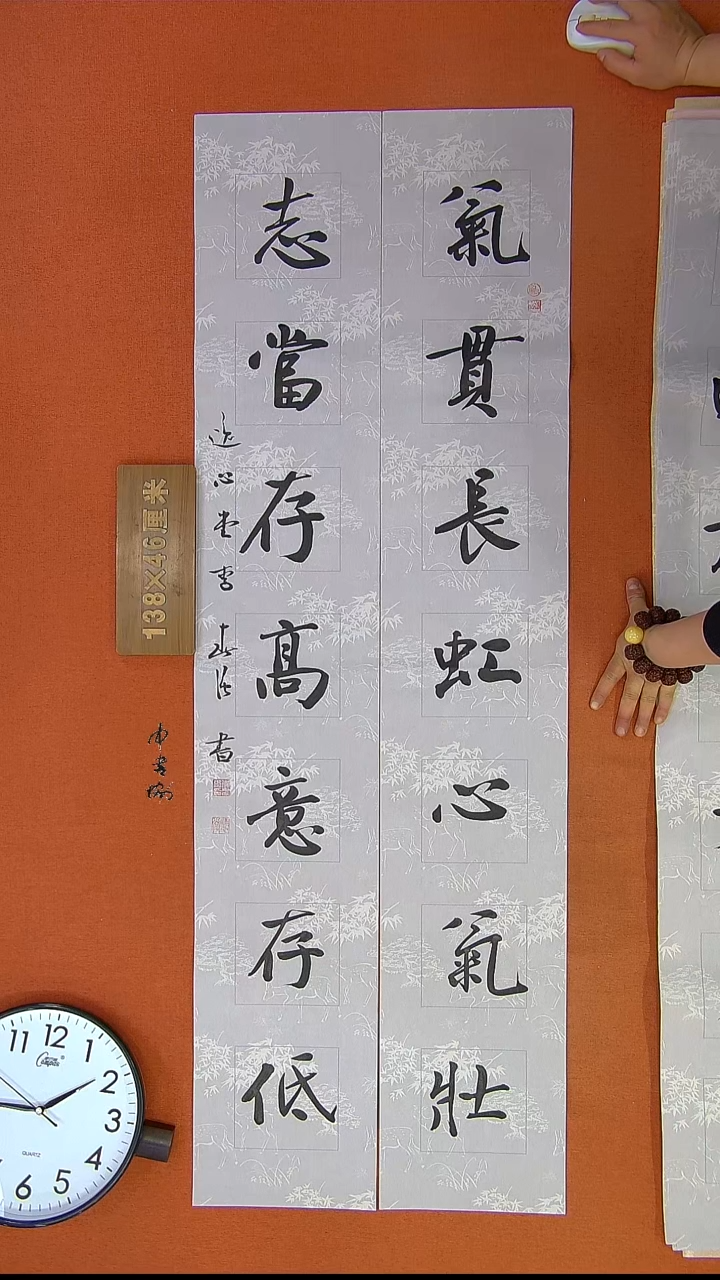 氣貫長虹心氣壯
志當存高意存低
138×46厘米
11 12 1
2
3
4
5
6
QUARTZ